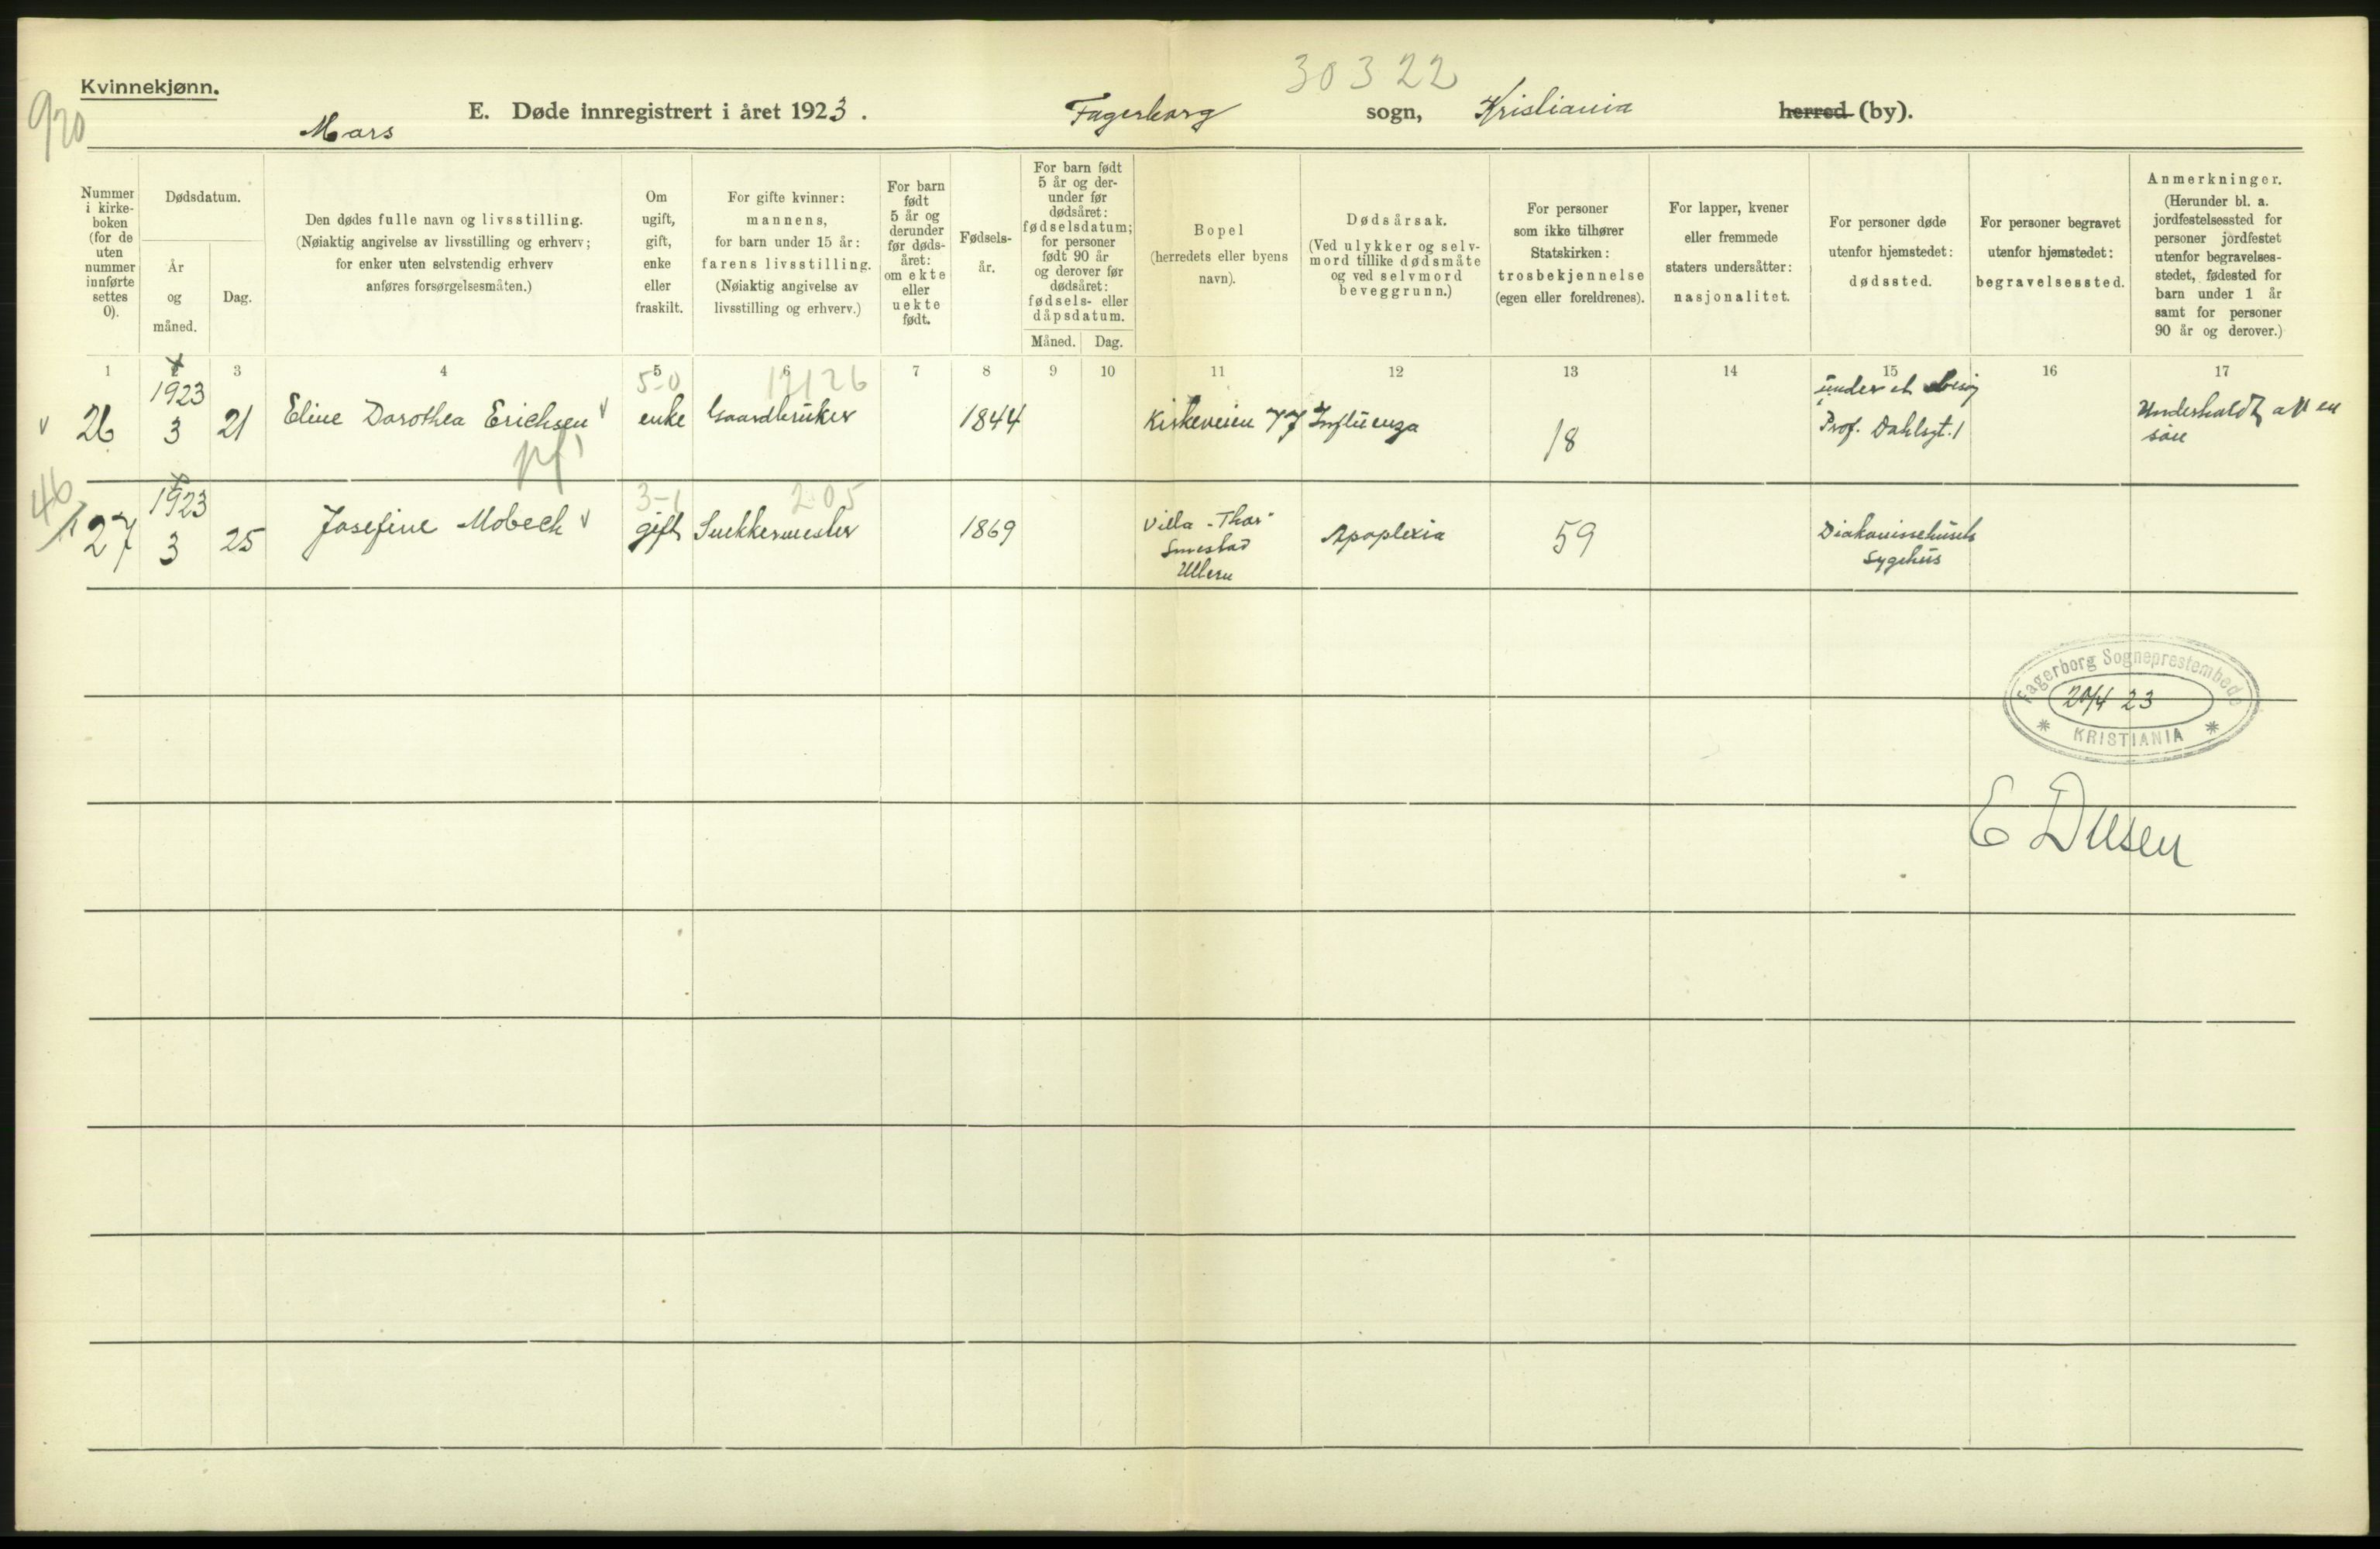 30322
Kvinnekjønn.
920
Mars
E. Døde innregistrert i året 1923.
Fagerborg sogn, Kristiania herred (by).
Nummer i kirke-boken (for de uten nummer innførte settes 0).
Dødsdatum.
År og måned.
Dag.
Den dødes fulle navn og livsstilling.
(Nøiaktig angivelse av livsstilling og erhverv;
for enker uten selvstendig erhverv
anføres forsørgelsesmåten.)
Om ugift, gift, enke eller fraskilt.
For gifte kvinner:
mannens,
for barn under 15 år:
farens livsstilling.
(Nøiaktig angivelse av
livsstilling og erhverv.)
For barn født 5 år og derunder før døds-året: om ekte eller uekte født.
Fødsels-år.
For barn født 5 år og der-under før dødsåret: fødselsdatum; for personer født 90 år og derover før dødsåret: fødsels- eller dåpsdatum.
Måned. Dag.
Bopel
(herredets eller byens
navn).
Dødsårsak.
(Ved ulykker og selv-
mord tillike dødsmåte
og ved selvmord
beveggrunn.)
For personer
som ikke tilhører
Statskirken:
trosbekjennelse
(egen eller foreldrenes).
For lapper, kvener
eller fremmede
staters undersåtter:
nasjonalitet.
For personer døde
utenfor hjemstedet:
dødssted.
For personer begravet
utenfor hjemstedet:
begravelsessted.
Anmerkninger.
(Herunder bl. a.
jordfestelsessted for
personer jordfestet
utenfor begravelses-
stedet, fødested for
barn under 1 år
samt for personer
90 år og derover.)
1 2 3 4 5 6 7 8 9 10 11 12 13 14 15 16 17
5-0 17126
26 1923 3 21 Eline Dorothea Erichsen enke Gaardbruker 1844 Kirkeveien 77 Influenza 18 under et besøg Prof. Dahlsgt. 1 Underholdt av en søn
46
3-1 205
27 1923 3 25 Josefine Mobech gift Snekkermester 1869 Villa "Thor" Smestad Ullern Apoplexia 59 Diakonissehusets Sygehus
Fagerborg Sogneprestembede
20/4 23
KRISTIANIA